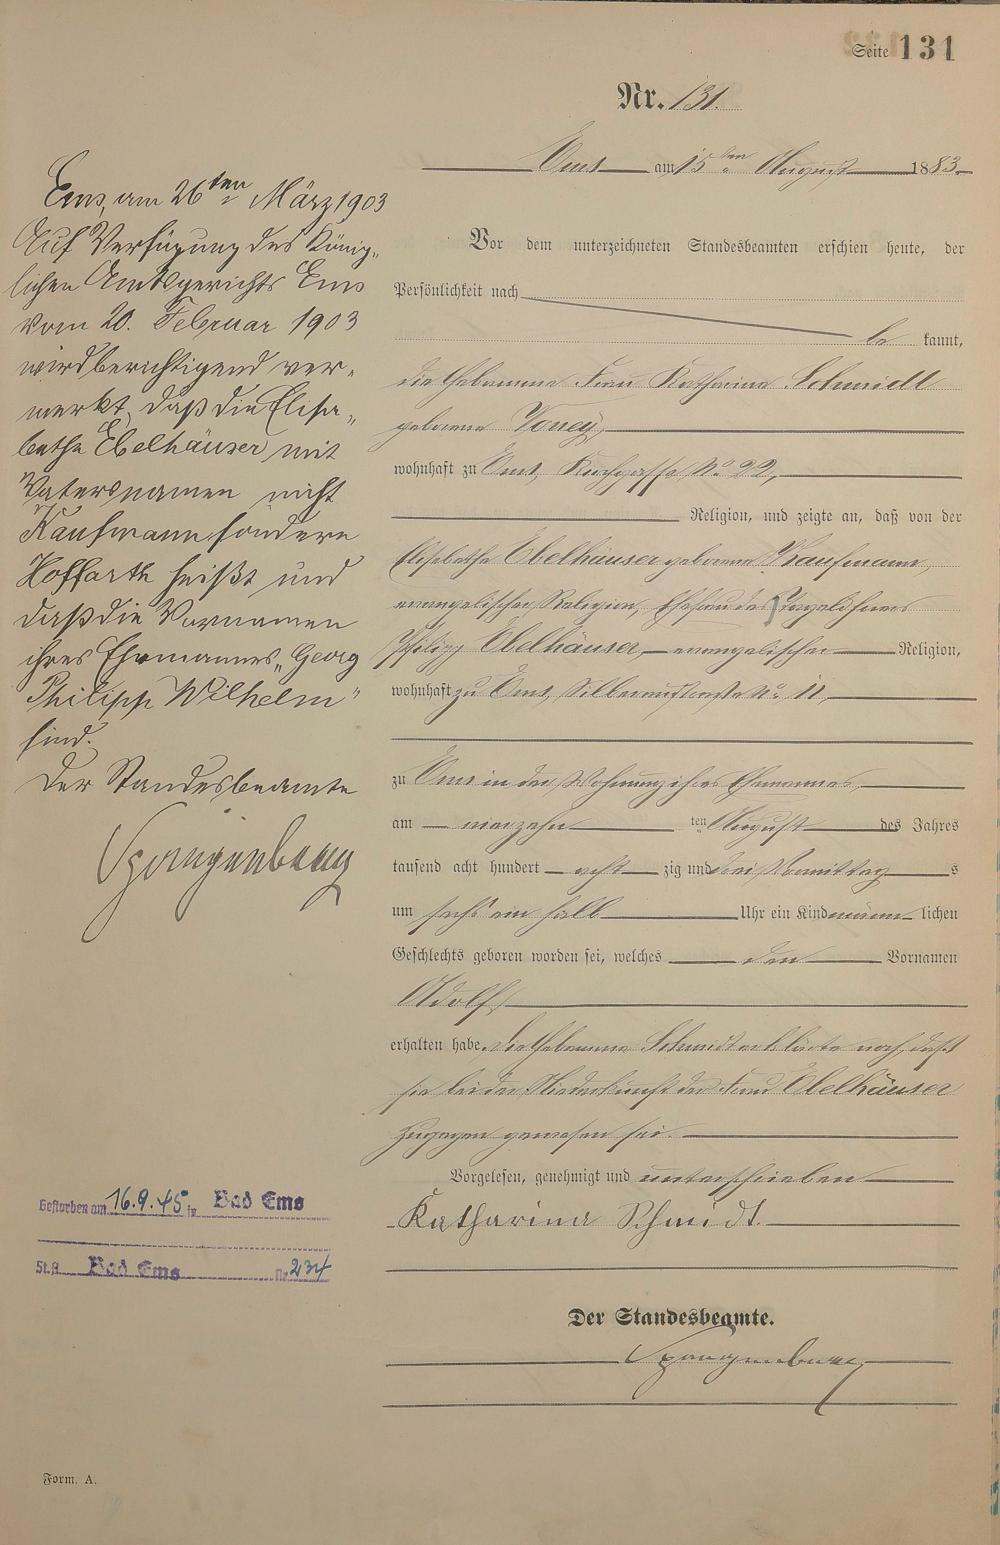 Seite 131
Nr. 131.
Ems am 15ten August 1883.
Vor dem unterzeichneten Standesbeamten erschien heute, der
Persönlichkeit nach
be kannt,
die Hebamme Frau Katharina Schmidt
geborene
wohnhaft zu Ems, Kirchgasse No. 22,
Religion, und zeigte an, daß von der
Elisabethe Ebelhäuser geborene Kaufmann,
evangelischer Religion, Ehefrau des Tagelöhners
Philipp Ebelhäuser, evangelischer Religion,
wohnhaft zu Ems, Silberaustraße No. 11,
zu Ems in der Wohnung ihres Ehemannes,
am vierzehn ten August des Jahres
tausend acht hundert acht zig und drei Vormittag s
um sechs ein halb Uhr ein Kind männ lichen
Geschlechts geboren worden sei, welches den Vornamen
Adolf
erhalten habe. Die Hebamme Schmidt erklärte noch, daß
sie bei der Niederkunft der Frau Ebelhäuser
zugegen gewesen sei.
Vorgelesen, genehmigt und unterschrieben
Katharina Schmidt.
Der Standesbeamte.
Spangenberg
Ems, am 26ten März 1903
Auf Verfügung des König„
lichen Amtsgerichts Ems
vom 20. Februar 1903
wird berichtigend ver„
merkt, daß die Elisa„
bethe Ebelhäuser mit
Vatersnamen nicht
Kaufmann sondern
Hoffarth heißt und
daß die Vornamen
ihres Ehemannes „Georg
Philipp Wilhelm“
sind.
Der Standesbeamte
Spangenberg
Gestorben am 16.9.45 in Bad Ems
St.A. Bad Ems Nr. 234
Form. A.